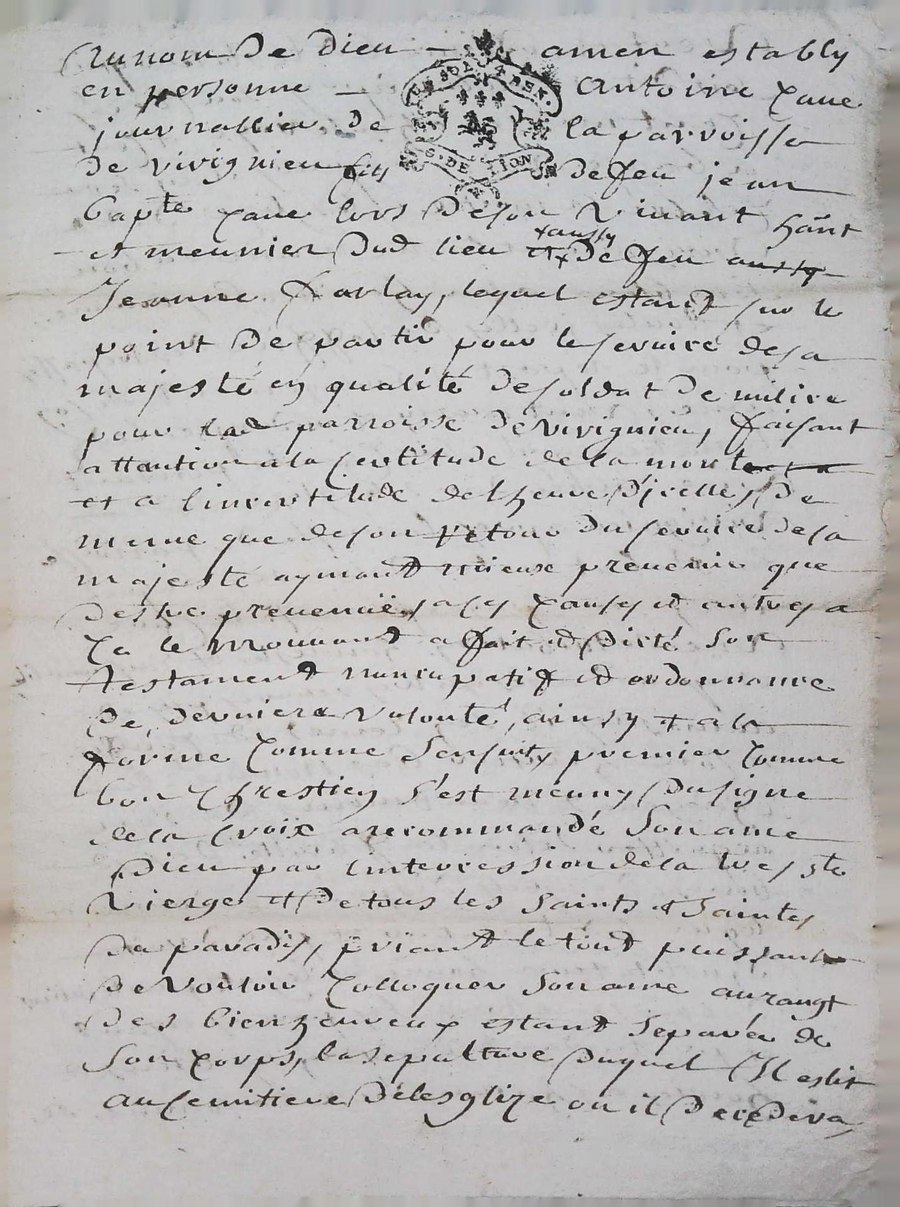 Au nom De Dieu amen estably
en personne Antoine Cave
journallier de la parroisse
de virignieu fils De feu jean
bapte Cave lors De son Vivant hant
et meunier Dud lieu et De feu aussy
&aussy
Jeanne farlay, lequel estant sur le
point De partir pour le service de sa
majesté en qualité de soldat De milice
pour lad parroisse De virignieu, faisant
attantion a la Certitude de la mort et a
et a l'incertitude de lheure D'icelle, De
meme que de son retour Du service de sa
majesté aymant mieux prevenir que
destre prevenü, a Ces Causes et autres a
Ce le mouvant a fait et Dicté son
testament nuncupatif et ordonnance
De derniere volonté, ainsy & a la
forme Comme Sensuit, premier Comme
bon Chrestien s'est meuny Du signe
de la Croix a recommandé Son ame
Dieu par lintercession de la tres ste
Vierge et De tous les Saints & Saintes
Du paradis, priant le tout puissant
De vouloir Colloquer Son ame au rangt
Des bienheureux estant Separée de
Son Corps, la sepulture Duquel Il eslit
au Cemitiere De lesglize ou il Decedera,